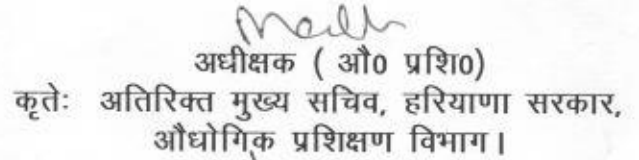 अधीक्षक ( औ0 प्रशि0)
कृतेः अतिरिक्त मुख्य सचिव, हरियाणा सरकार,
औधोगिक प्रशिक्षण विभाग।